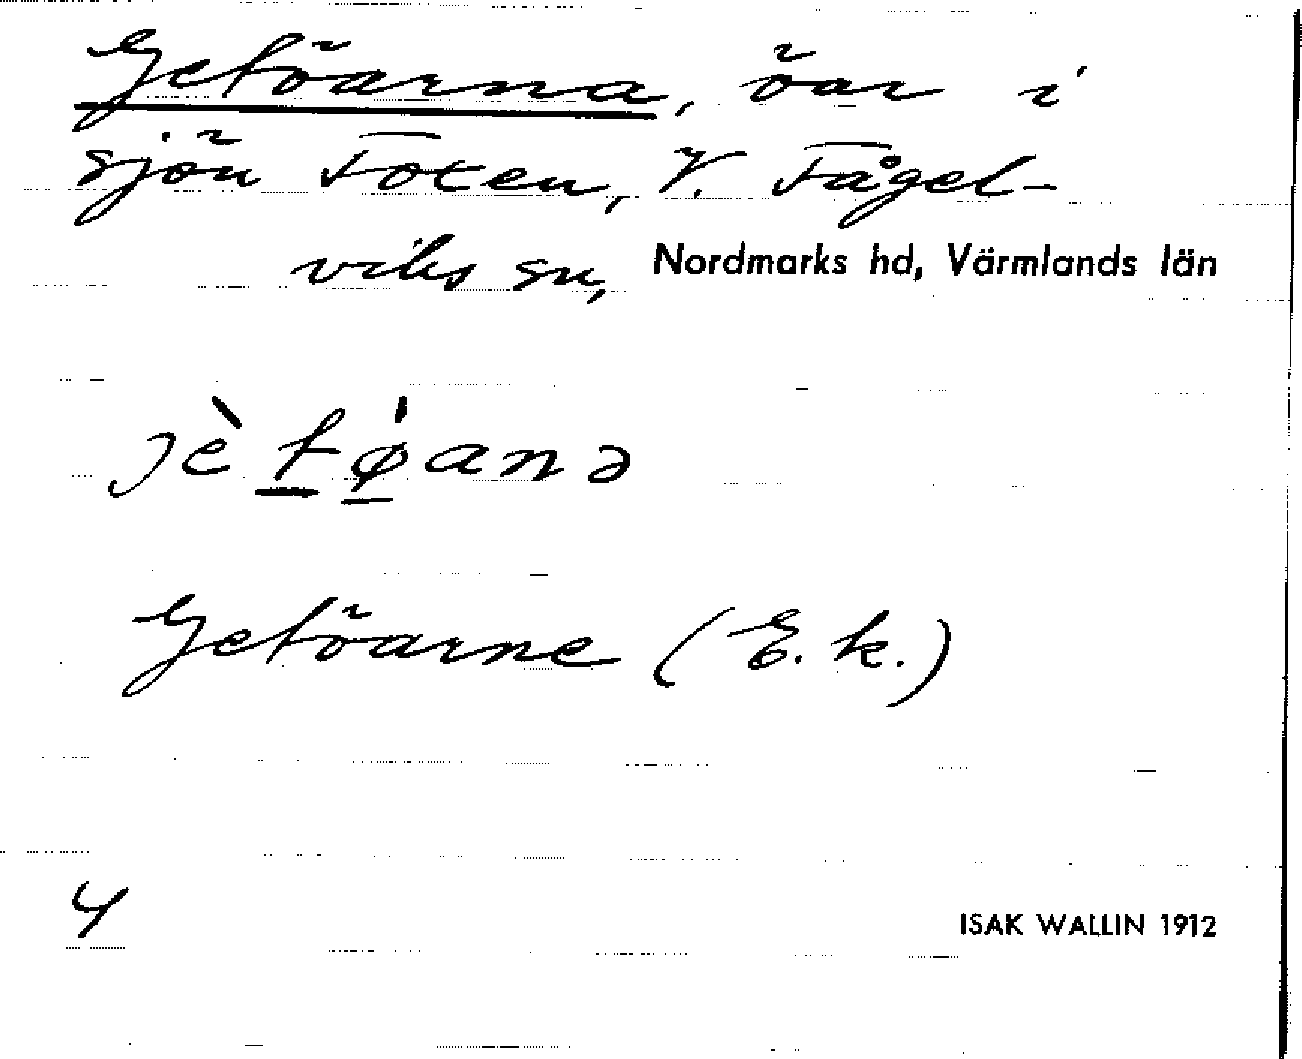 Getöarna, öar i
sjön Foxen, V. Fågel-
viks sn, Nordmarks hd, Värmlands län
jètǿanə
Getöarne (E. k.)
4
ISAK WALLIN 1912